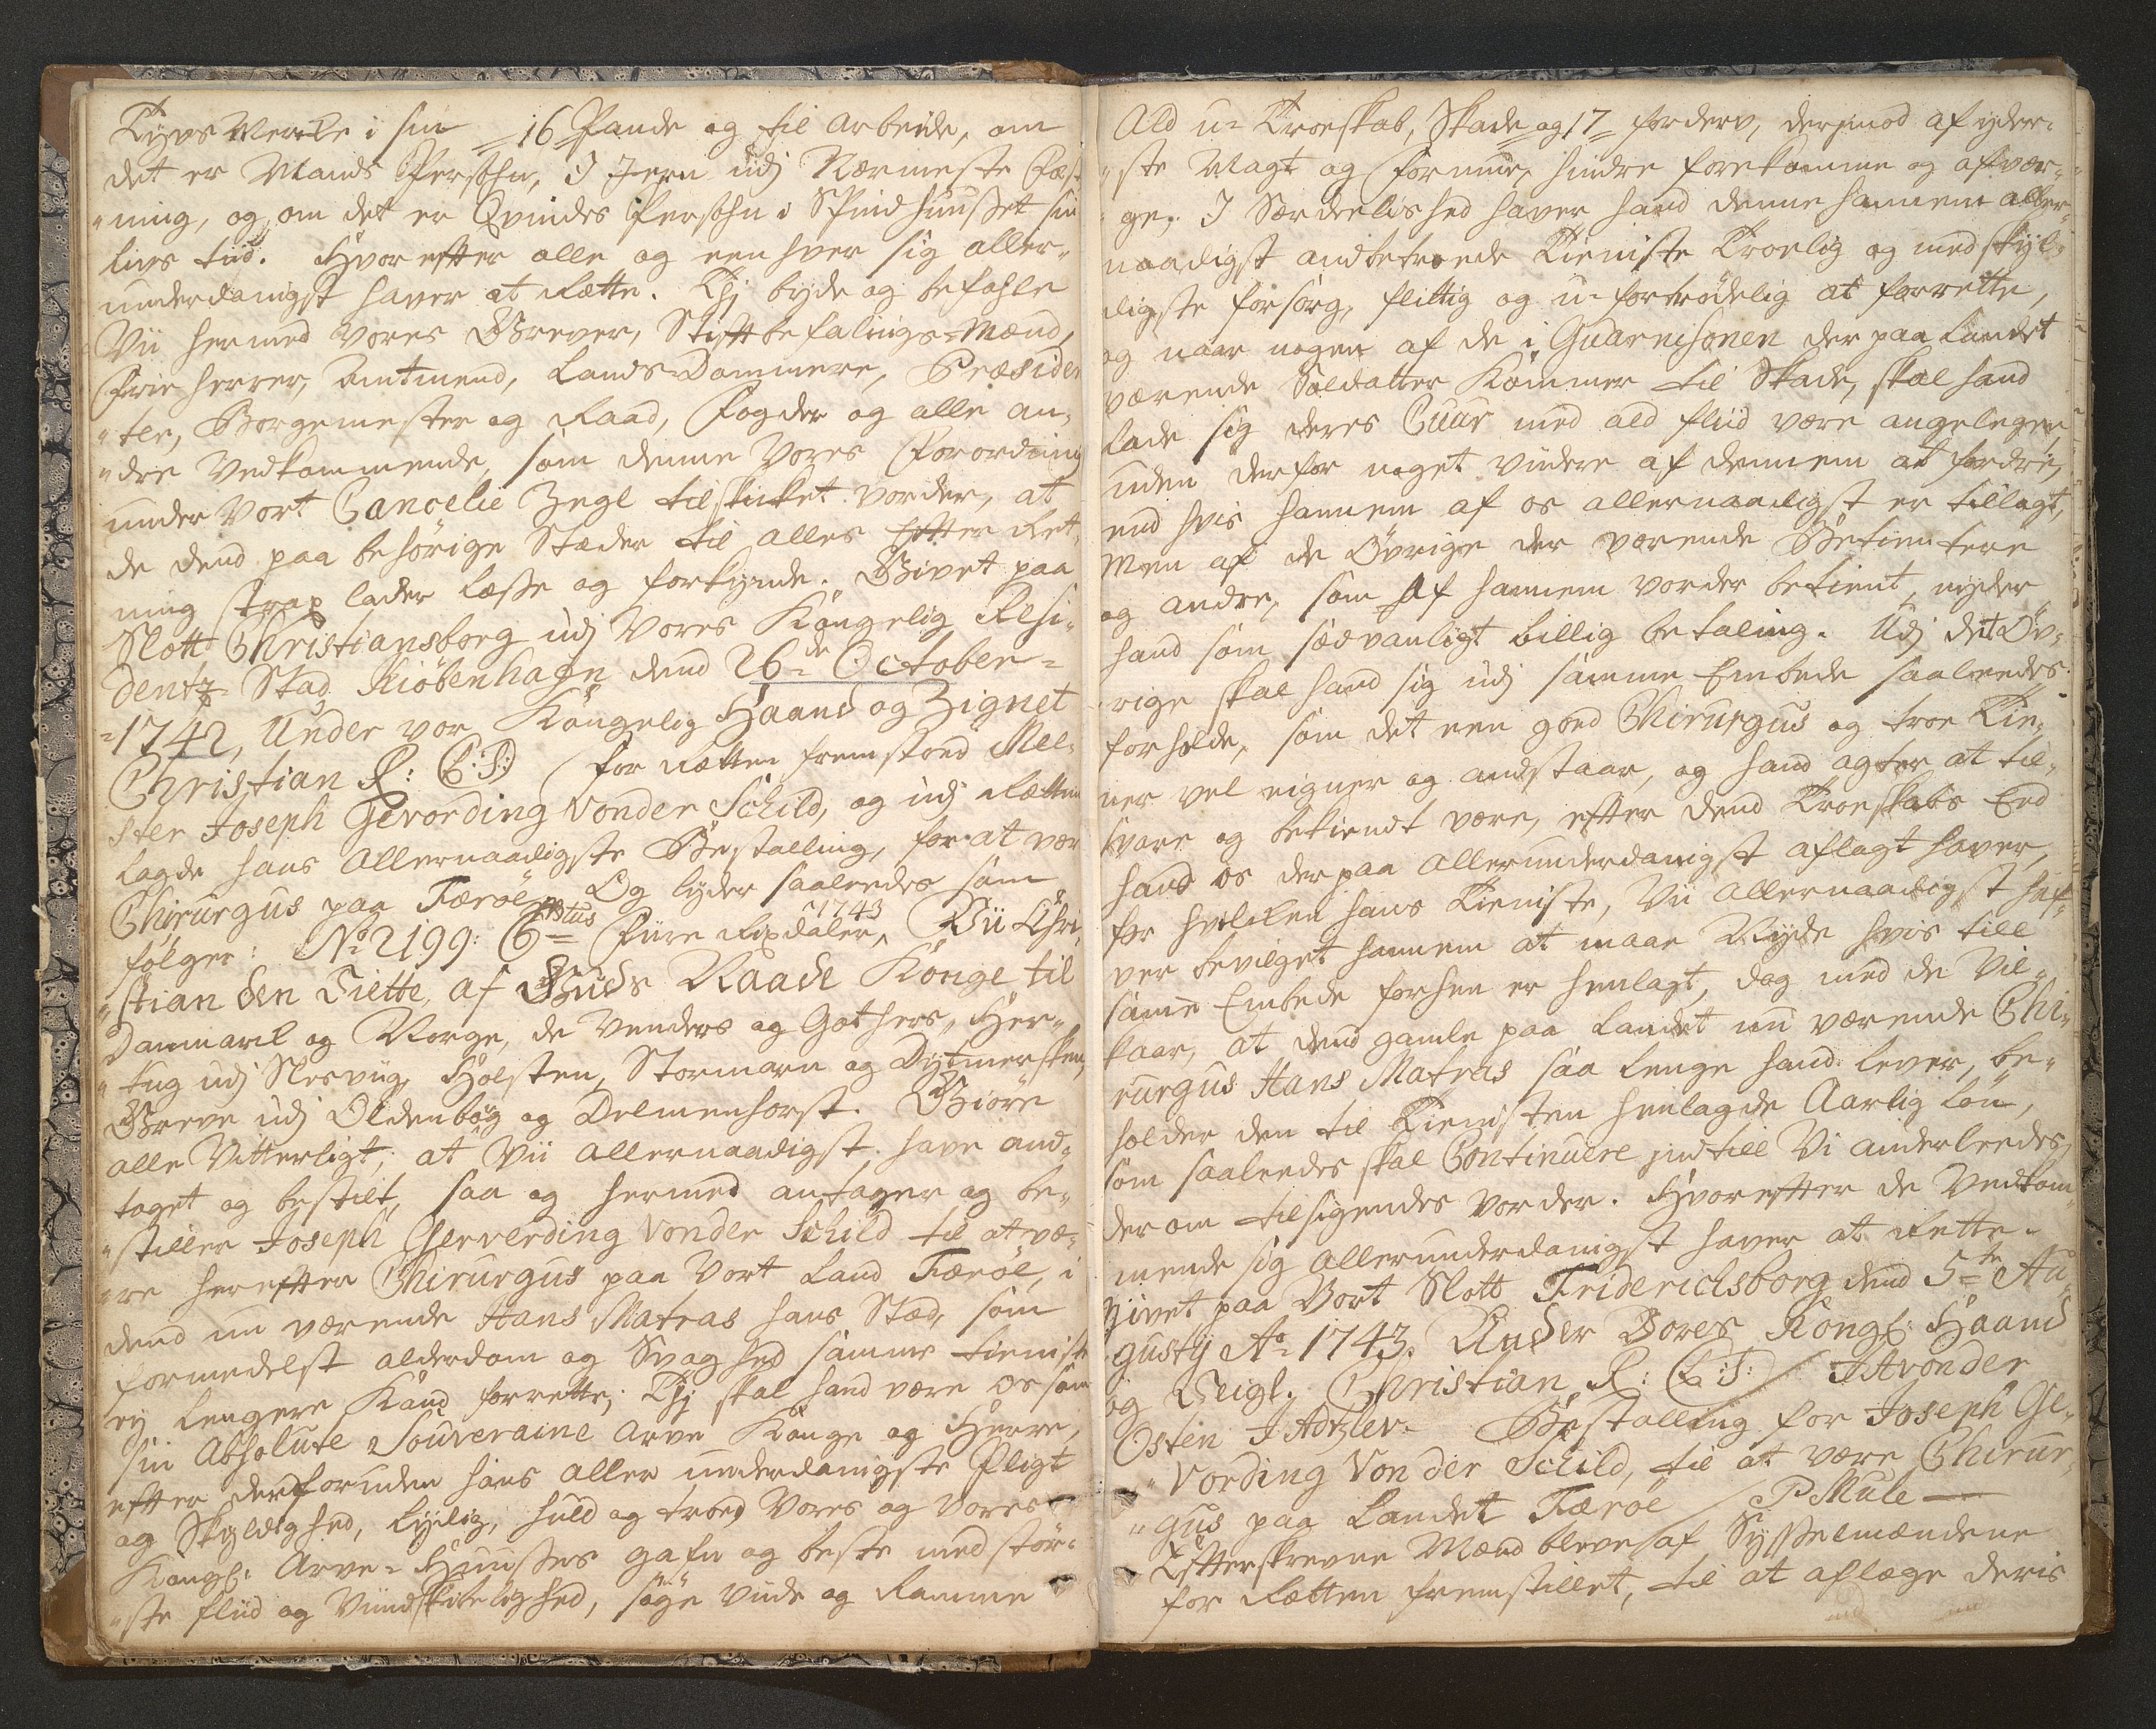 Tyvs Merke i sin =16= Pande og til arbeide, om
det er Mands Persohn, I Jern udj Nærmeste Fæst-
"ning, og om det er Qvindes Persohn i Spindhuuset sin
livs tiid. Hvorefter alle og een hver sig aller-
underdanigst haver at rette. Thj byde og befahle
Vii hermed Vores Grever, Stiftbefalings-Mænd,
Frie herrer, Amtmend, Lands-Dommere, Præsiden
"ter, Borgemester og Raad, Fogder og alle an-
"dre Vedkommende, som denne Vores Forordning
under Vort Cancelie Zegl tilskicket vorder, at
de dend paa behörige Stæder til alles Efter Ret-
ning strax lader læse og forkynde. Givet paa
Slott Christiansborg udj Vores Kongelig Resi-
dentz-Stad Kiöbenhagn dend 26de October=
=1742, Under vor Kongelig Haand og Zignet
Christian R: (L:S:) For Rætten fremstoed Mel-
ster Joseph Gerording Vonder Schild, og udj Rætten
lagde hans Allernaadigste Bestalling, for at være
Chirurgus paa Færöe, Og lyder saaledes som
fölger: No 2199: C6=stus Fiire Rixdaler, 1743 Vii Chri-
"stian den Siette, af Guds Naade Konge til
Danmarck og Norge, de Venders og Gothers, Her-
"tug udj Slesviig, Holsten, Stormarn og Dytmersken,
Greve udj Oldenborg og Delmenhorst. Giöre
alle Vitterligt, at Vii allernaadigst have and-
taget og bestilt, saa og hermed antager og be-
"stiller Joseph Gerverding Vonder Schild til at væ-
"re herefter Chirurgus paa Vort Land Færöe, i
dend nu værende Hans Matras hans Stæd, som
formedelst alderdom og Svaghed samme tieniste
ey lengere Kand forrette; Thj skal hand være os som
sin Absolute Souveraine Arve Konge og Herre,
efter derforuden hans aller underdanigste Pligt
og Skyldighed, lydig, huld og troe, Vores og Vores
Kongl: Arve-Huusses gafn og beste med stör-
"ste fliid og Vindskibelighed, söge viide og Ramme
Ald u-Troeskab, Skade og =17= forderv, derimod af yder-
"ste Magt og Formue, hindre forekomme og afvær-
"ge. I Særdeelished haver hand denne hannem aller-
naadigst andbetroede Tieniste Troelig og med skyl-
digste forsörg, flittig og u-fortrödelig at forrette,
og naar nogen af de i Guarnisonen der paa Landet
værende Soldatter Kommer til Skade, skal hand
lade sig deres Cuur med ald fliid være angelegen,
uden derfor noget viidere af dennem at fordre,
end hvis hannem af os allernaadigst er tillagt,
Men af de Övrige der værende Betientere
og andre, som Af hannem vorder betient, nyder
hand som sædvanligt billig betaling. Udj det Öv-
rige skal hand sig udj samme Embede saaledes
forholde, som det een goed Chirurgus og troe Tie-
ner vel eigner og andstaar, og hand agter at til-
svare og bekiendt være, efter dend Troeskabs Eed
hand os derpaa allerunderdanigst aflagt haver,
for hvilcken hans Tieniste, Vii allernaadigst haf-
ver bevilget hannem at maae Nyde hvis till
samme Embede forhen er henlagt, dog med de Vil-
kaar, at dend gamle paa Landet nu værende Chi-
rurgus Hans Matras saa lenge hand lever, be-
holder den til Tienisten henlagde Aarlig Lön,
som saaledes skal Continuere indtill Vi anderleedes
derom tilsigendes vorder. Hvorefter de Vedkom-
mende sig allerunderdanigst haver at Rette.
givet paa Vort Slott Friderichsborg dend 5te Au-
gustij Ao 1743. Under Vores Kongl: Haand
og Seigl. Christian R: (L:S: / I A vonder
Osten J Adtzler. Bestalling for Joseph Ge-
"Vording Vonder Schild, til at være Chirur-
"gus paa Landet Færöe / P Mule —
Efterskrevne Mænd bleve af Sysselmændene
for Rætten fremstillet, til at aflæge deris